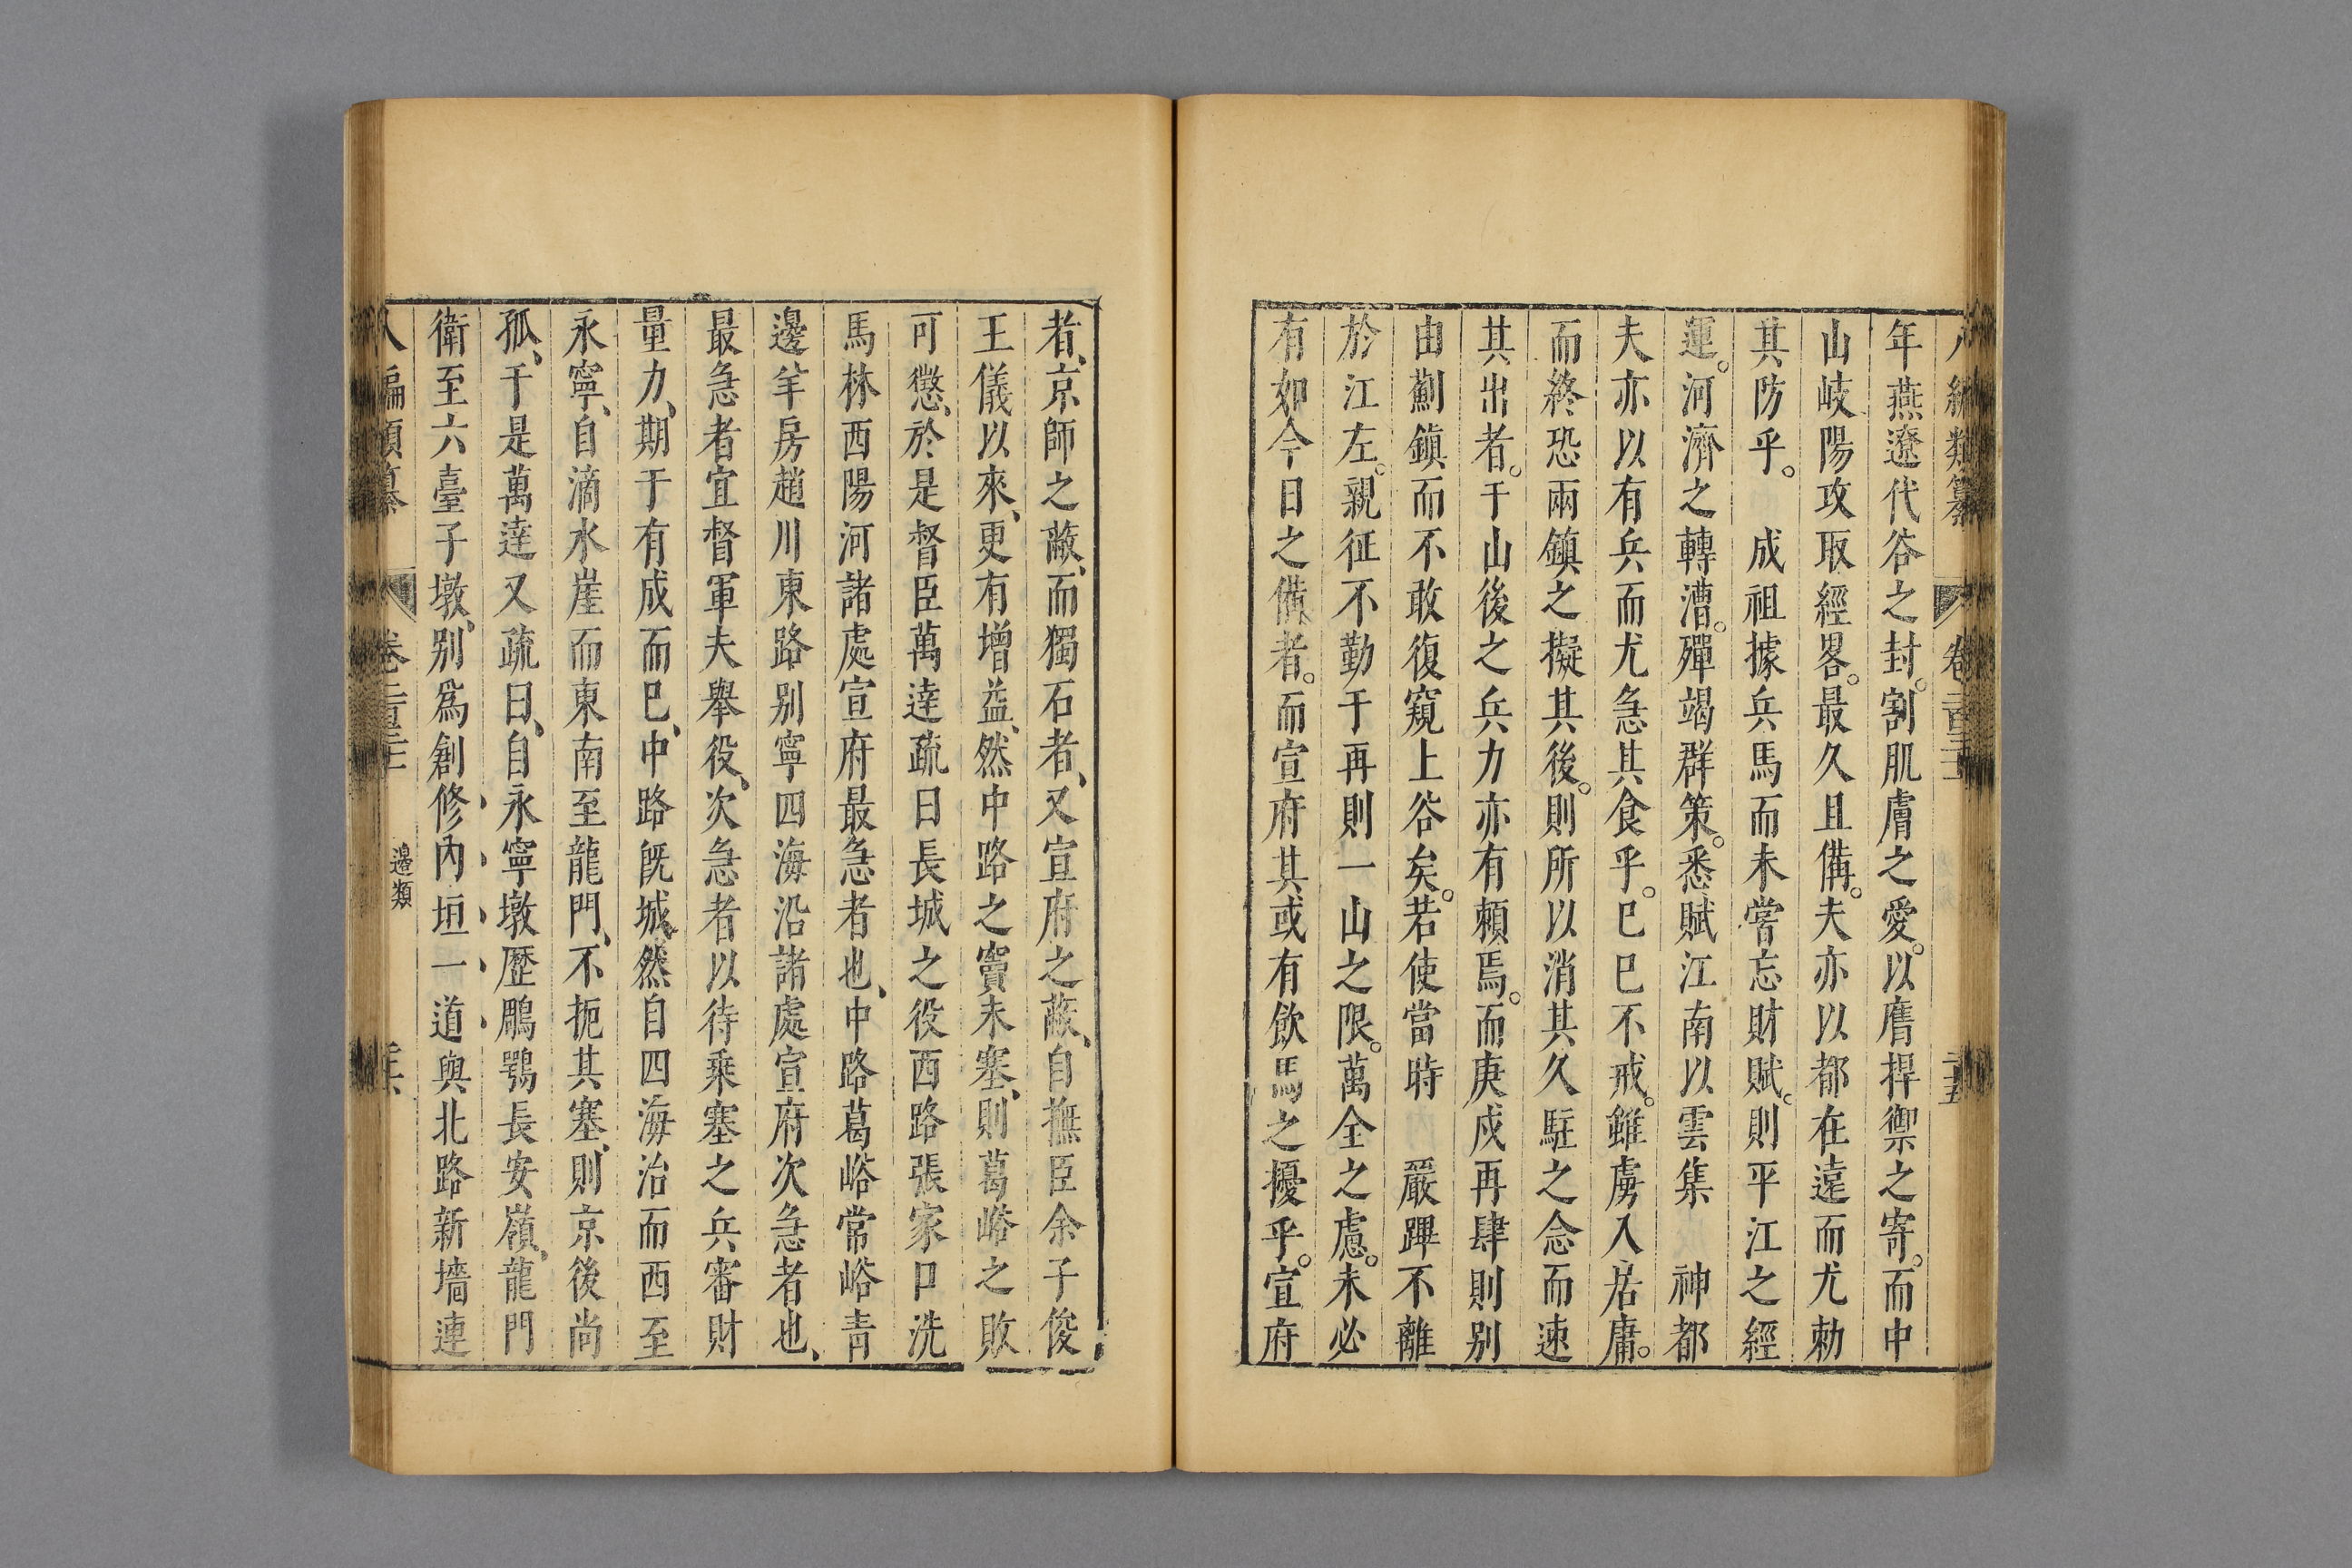 年燕遼代谷之封。割肌膚之愛。以膺捍禦之寄。而中
山岐陽攻取經畧。最久且備。夫亦以都在遠而尤勅
其防乎。　成祖據兵馬而未嘗忘財賦。則平江之經
運。河濟之轉漕。殫竭群策。悉賦江南以雲集　神都
夫亦以有兵而尤急其食乎。巳巳不戒。雖虜入居庸。
而終恐兩鎮之擬其後。則所以消其久駐之念而速
其出者。于山後之兵力亦有頼焉。而庚戍再肆則别
由薊鎮而不敢復窺上谷矣。若使當時　嚴蹕不離
於江左。親征不勤于再則一山之限。萬全之慮。未必
有如今日之備者。而宣府其或有飲馬之擾乎。宣府
者、京師之蔽、而獨石者、又宣府之蔽、自撫臣余子俊
王儀以來、更有增益、然中路之竇未塞、則葛峪之敗
可懲、於是督臣萬達疏曰長城之役西路張家口洗
馬林西陽河諸處宣府最急者也、中路葛峪常峪青
邊羊房趙川東路别寧四海沿諸處宣府次急者也、
最急者宜督軍夫舉役、次急者以待乘塞之兵審財
量力、期于有成而巳、中路旣城、然自四海治而西至
永寧、自滴水崖而東南至龍門、不扼其塞、則京後尚
孤、于是萬達又疏曰、自永寧墩歷鵰鶚長安嶺、龍門
衛至六臺子墩、别爲創修內垣一道與北路新墻連
邊類